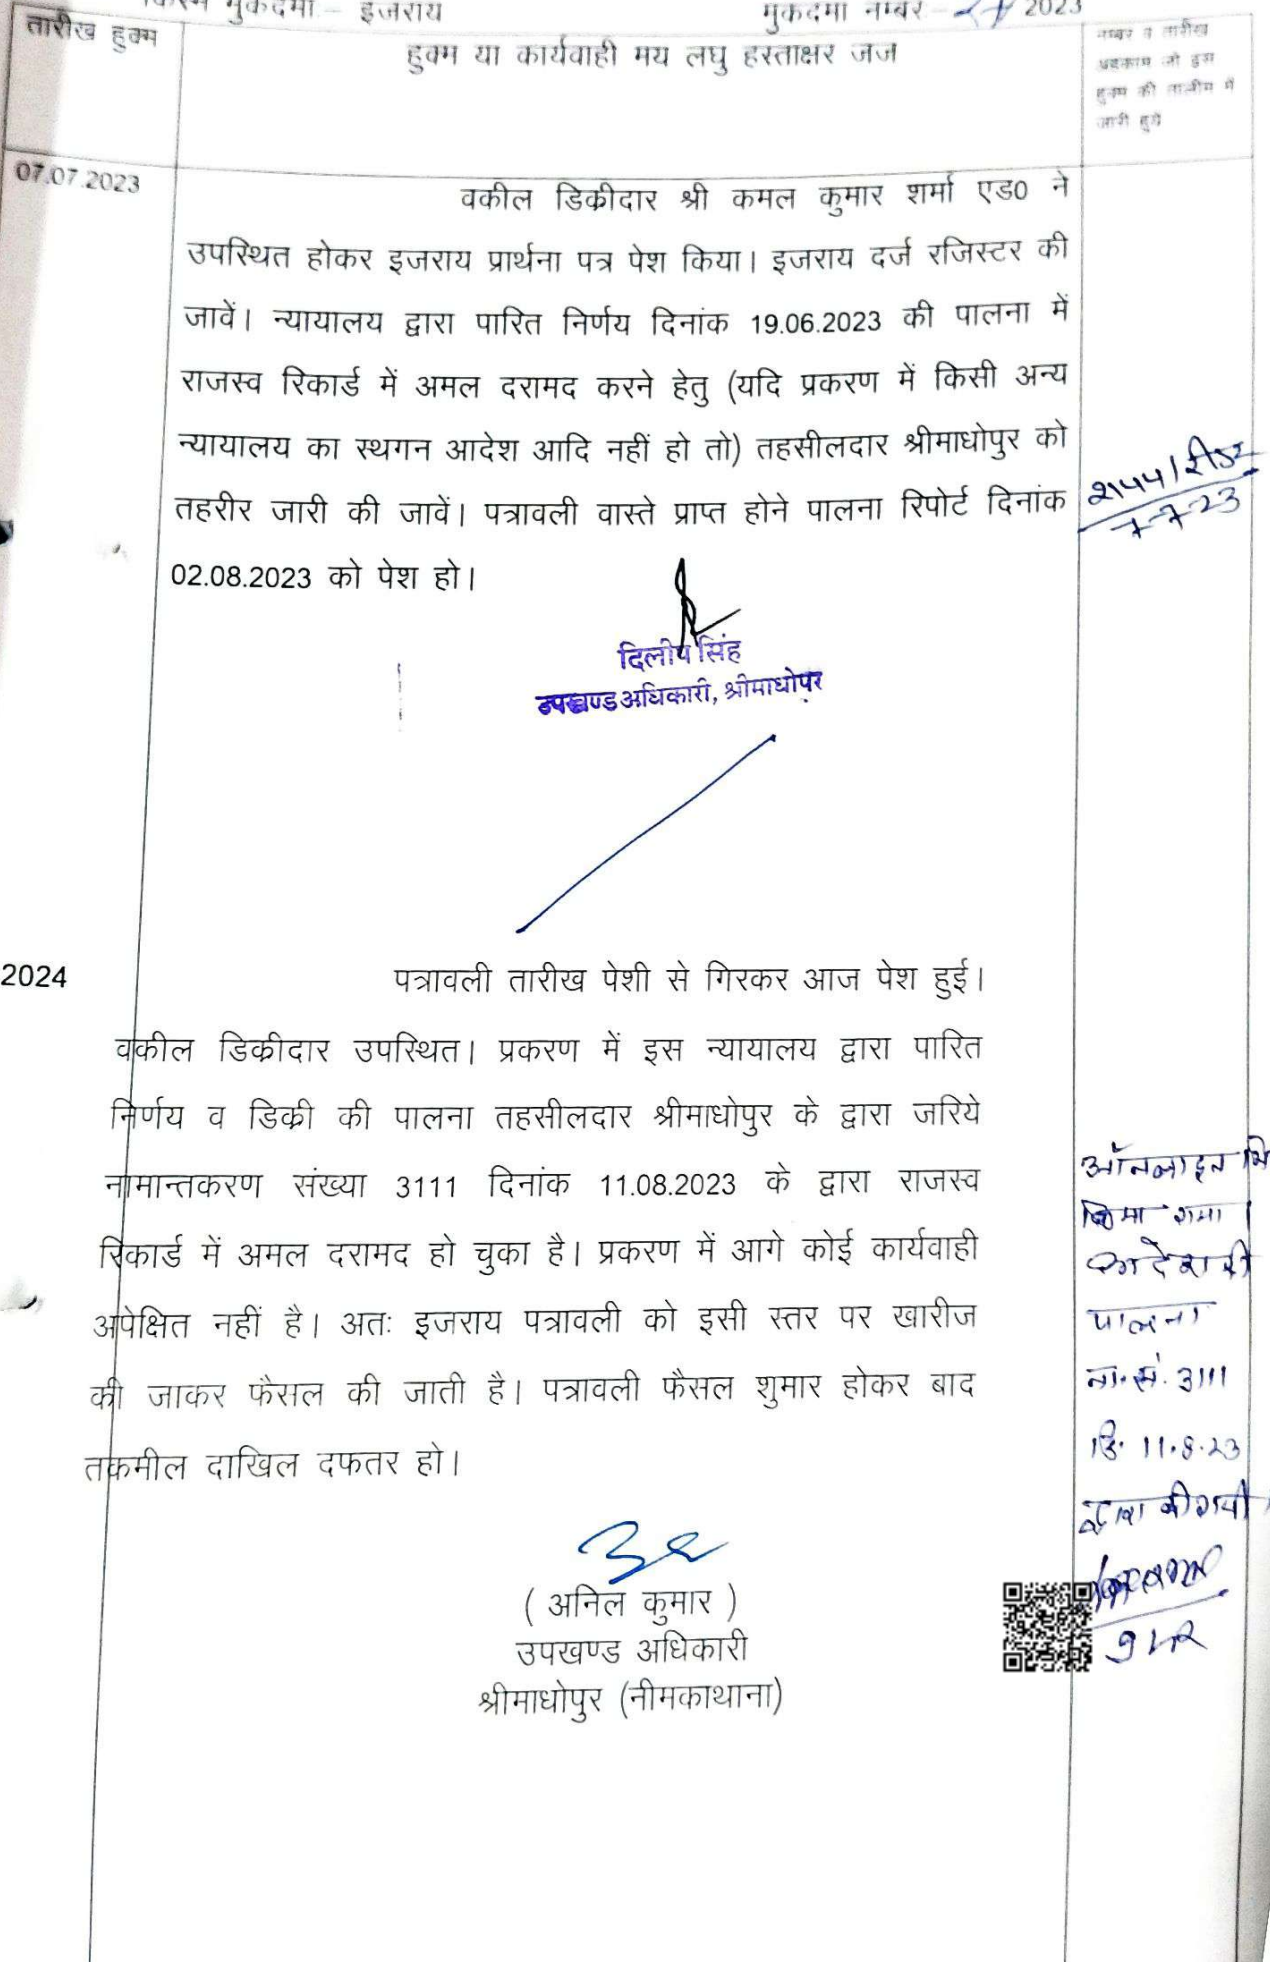 किस्म मुकदमा – इजराय
मुकदमा नम्बर – 2023
तारीख हुक्म
हुक्म या कार्यवाही मय लघु हस्ताक्षर जज
नम्बर व तारीख
अहकाम जो इस
हुक्म की तालीम में
जारी हुये
07.07.2023
वकील डिक्रीदार श्री कमल कुमार शर्मा एड0 ने
उपस्थित होकर इजराय प्रार्थना पत्र पेश किया। इजराय दर्ज रजिस्टर की
जावें। न्यायालय द्वारा पारित निर्णय दिनांक 19.06.2023 की पालना में
राजस्व रिकार्ड में अमल दरामद करने हेतु (यदि प्रकरण में किसी अन्य
न्यायालय का स्थगन आदेश आदि नहीं हो तो) तहसीलदार श्रीमाधोपुर को
तहरीर जारी की जावें। पत्रावली वास्ते प्राप्त होने पालना रिपोर्ट दिनांक
02.08.2023 को पेश हो।
7-7-23
दिलीप सिंह
उपखण्ड अधिकारी, श्रीमाधोपुर
2024
पत्रावली तारीख पेशी से गिरकर आज पेश हुई।
वकील डिक्रीदार उपस्थित। प्रकरण में इस न्यायालय द्वारा पारित
निर्णय व डिक्री की पालना तहसीलदार श्रीमाधोपुर के द्वारा जरिये
नामान्तकरण संख्या 3111 दिनांक 11.08.2023 के द्वारा राजस्व
रिकार्ड में अमल दरामद हो चुका है। प्रकरण में आगे कोई कार्यवाही
अपेक्षित नहीं है। अतः इजराय पत्रावली को इसी स्तर पर खारीज
की जाकर फैसल की जाती है। पत्रावली फैसल शुमार होकर बाद
तकमील दाखिल दफतर हो।
ऑनलाइन
आदेश की
पालना
ना.सं. 3111
दि. 11.8.23
द्वारा की गयी
( अनिल कुमार )
उपखण्ड अधिकारी
श्रीमाधोपुर (नीमकाथाना)